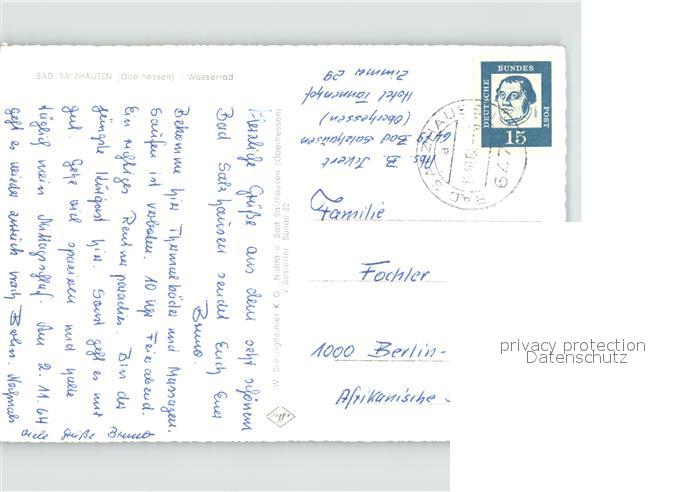 BAD SALZHAUSEN (Oberhessen) - Wasserrad
Herzliche Grüße aus dem sehr schönem
Bad Salzhausen sendet Euch Euer
Bruno.
Bekomme hier Thermalbäder und Massagen.
Saufen ist verboten. 10 Uhr Feierabend.
Ein richtiges Rentnerparadies. Bin der
jüngste Kurgast hier. Sonst geht es mir
gut. Gehe viel spazieren und halte
täglich mein Mittagsschlaf. Am 2.11.64
geht es wieder zurück nach Berlin. Nochmals
viele Grüße Bruno
W. Breitzigheimer K G Nidda u. Bad Salzhausen (Oberhessen)
Abs. B.
6479 Bad Salzhausen
(Oberhessen)
Hotel Tannenhof
Zimmer 29
DEUTSCHE BUNDES POST
15
BAD SALZHAUSEN
6479
Familie
Fochler
1000 Berlin-
Afrikanische
privacy protection
Datenschutz